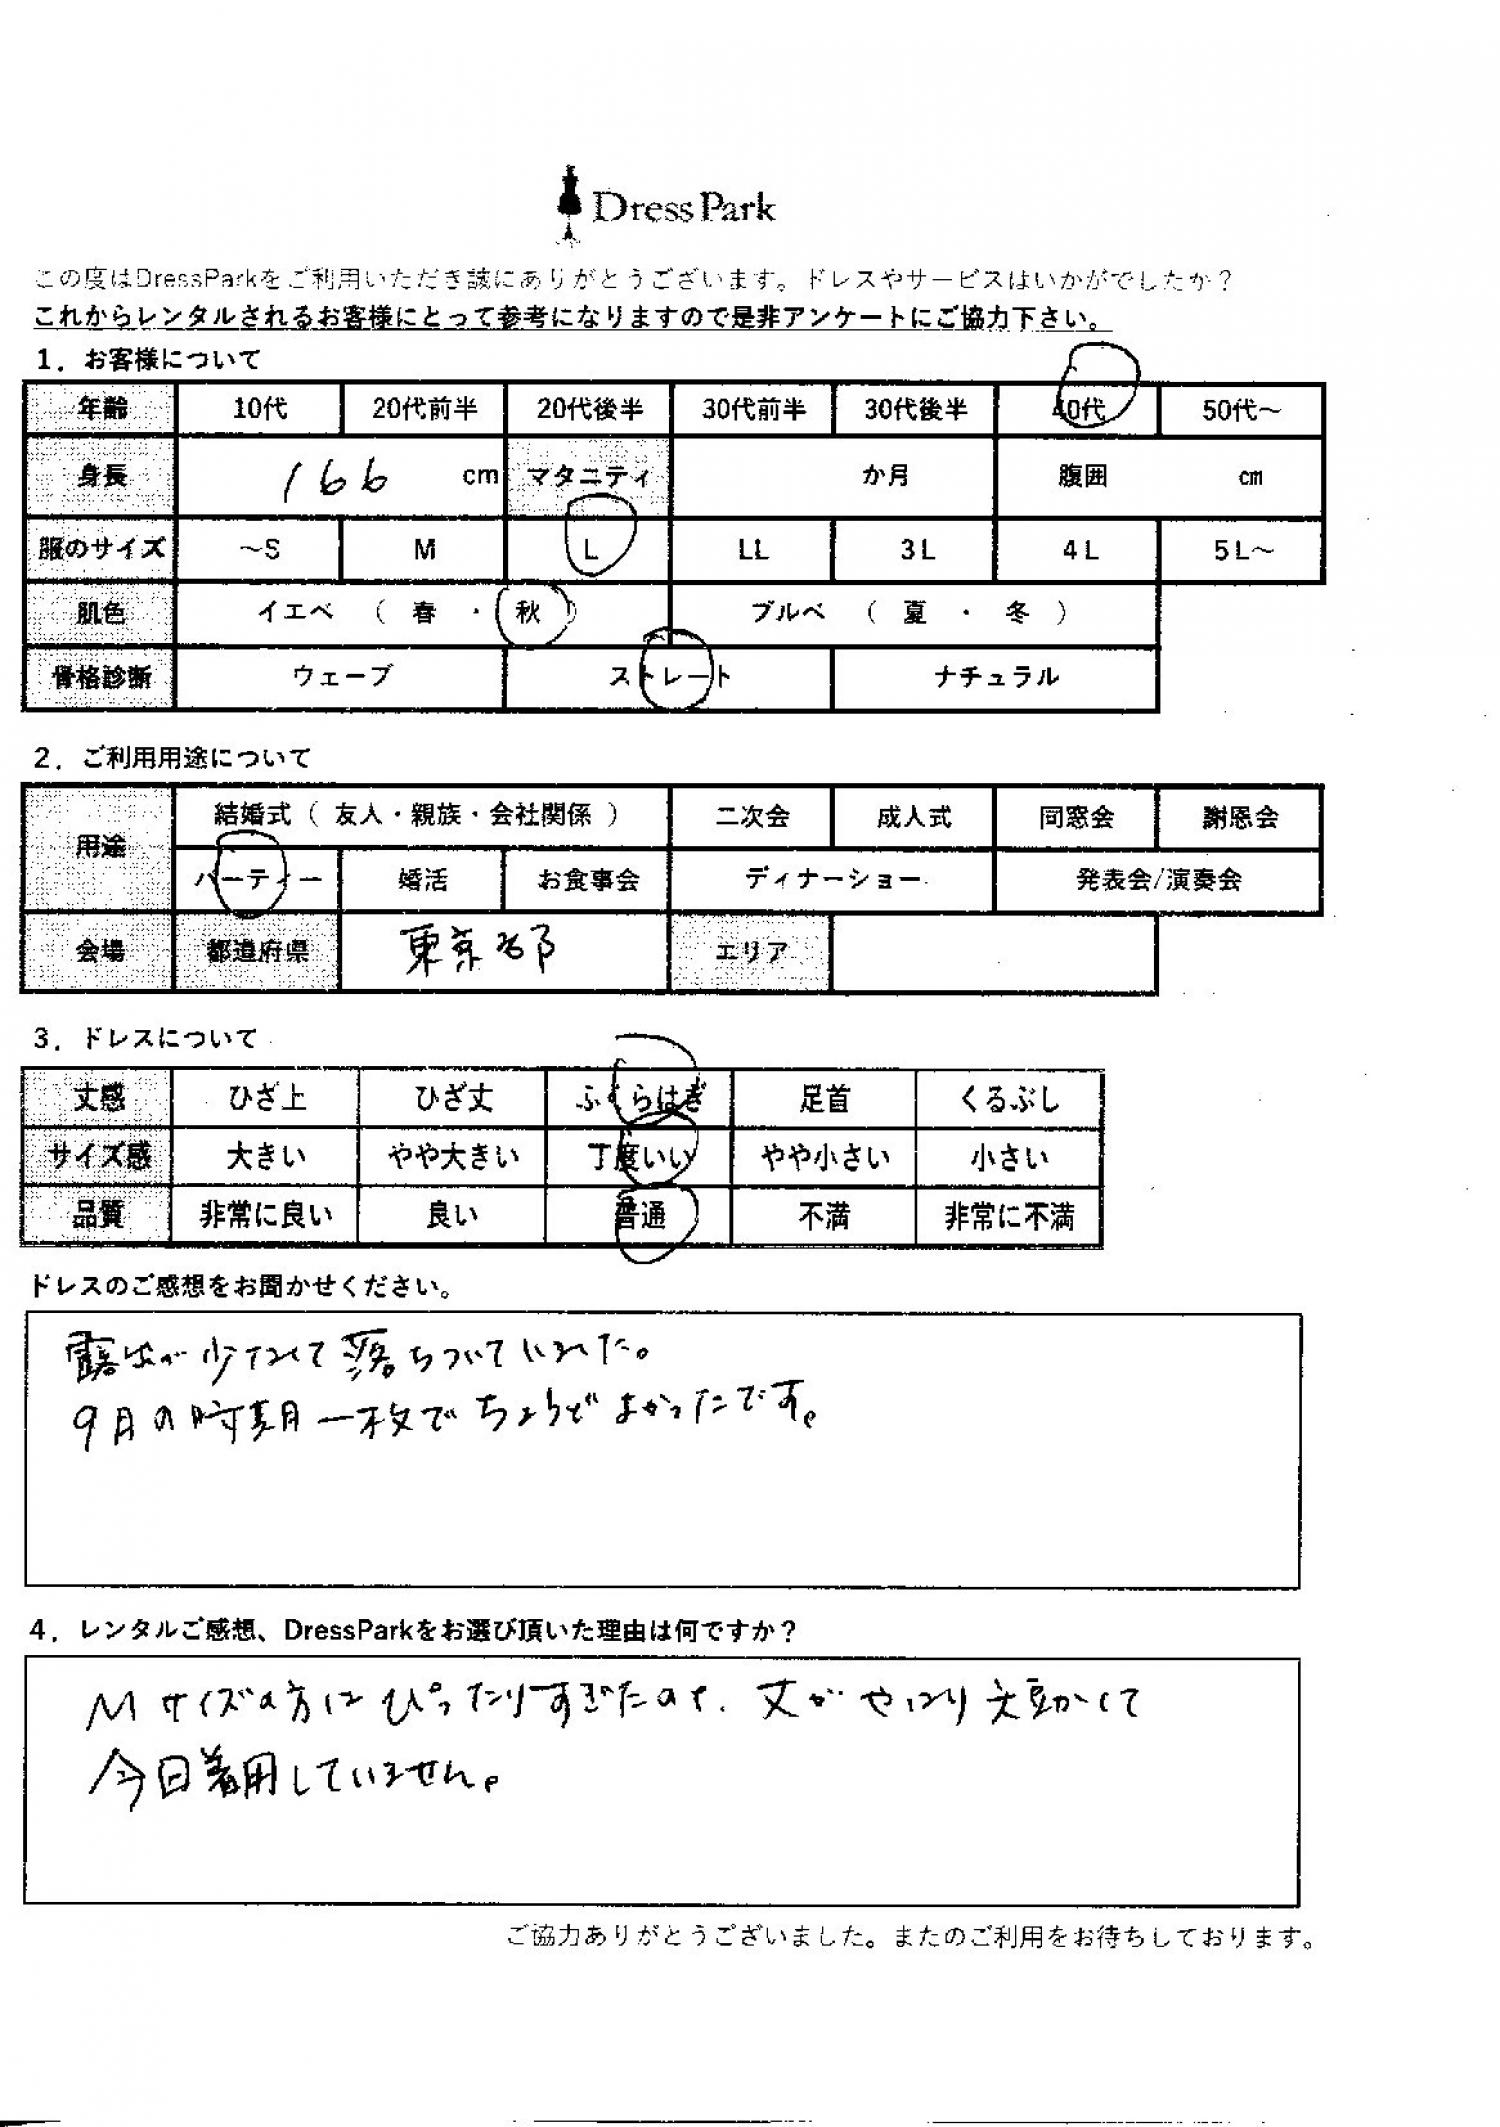 Dress Park
この度はDressParkをご利用いただき誠にありがとうございます。ドレスやサービスはいかがでしたか？
これからレンタルされるお客様にとって参考になりますので是非アンケートにご協力下さい。
1．お客様について
年齢 10代 20代前半 20代後半 30代前半 30代後半 40代 50代～
身長 166 cm マタニティ か月 腹囲 cm
服のサイズ ～S M L LL 3L 4L 5L～
肌色 イエベ （ 春 ・ 秋 ） ブルベ （ 夏 ・ 冬 ）
骨格診断 ウェーブ ストレート ナチュラル
2．ご利用用途について
用途 結婚式（ 友人・親族・会社関係 ） 二次会 成人式 同窓会 謝恩会
パーティー 婚活 お食事会 ディナーショー 発表会/演奏会
会場 都道府県 東京都 エリア
3．ドレスについて
丈感 ひざ上 ひざ丈 ふくらはぎ 足首 くるぶし
サイズ感 大きい やや大きい 丁度いい やや小さい 小さい
品質 非常に良い 良い 普通 不満 非常に不満
ドレスのご感想をお聞かせください。
露出が少なくて落ちついていました。
9月の時期一枚でちょうどよかったです。
4．レンタルご感想、DressParkをお選び頂いた理由は何ですか？
Mサイズの方はぴったりすぎたのと、丈がやはり短くて
今日着用していません。
ご協力ありがとうございました。またのご利用をお待ちしております。